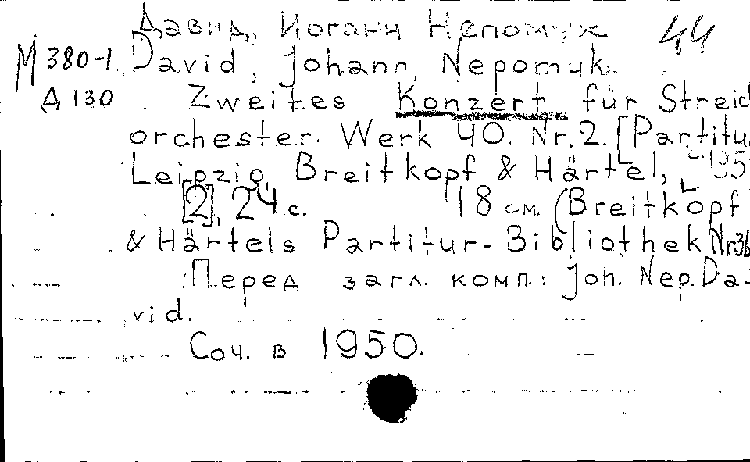 Давид, Иоганн Непомук 44
М 380-1 David, Johann Nepomuk.
Д 130 Zweites Konzert für Streich
orchester. Werk 40. Nr. 2. [Partitu
Leipzig, Breitkopf & Härtel, 195
[2], 24 с. 18 см. (Breitkopf
& Härtels Partitur-Bibliothek Nr 36
Перед загл. комп.: Joh. Nep. Da-
vid.
Соч. в 1950.